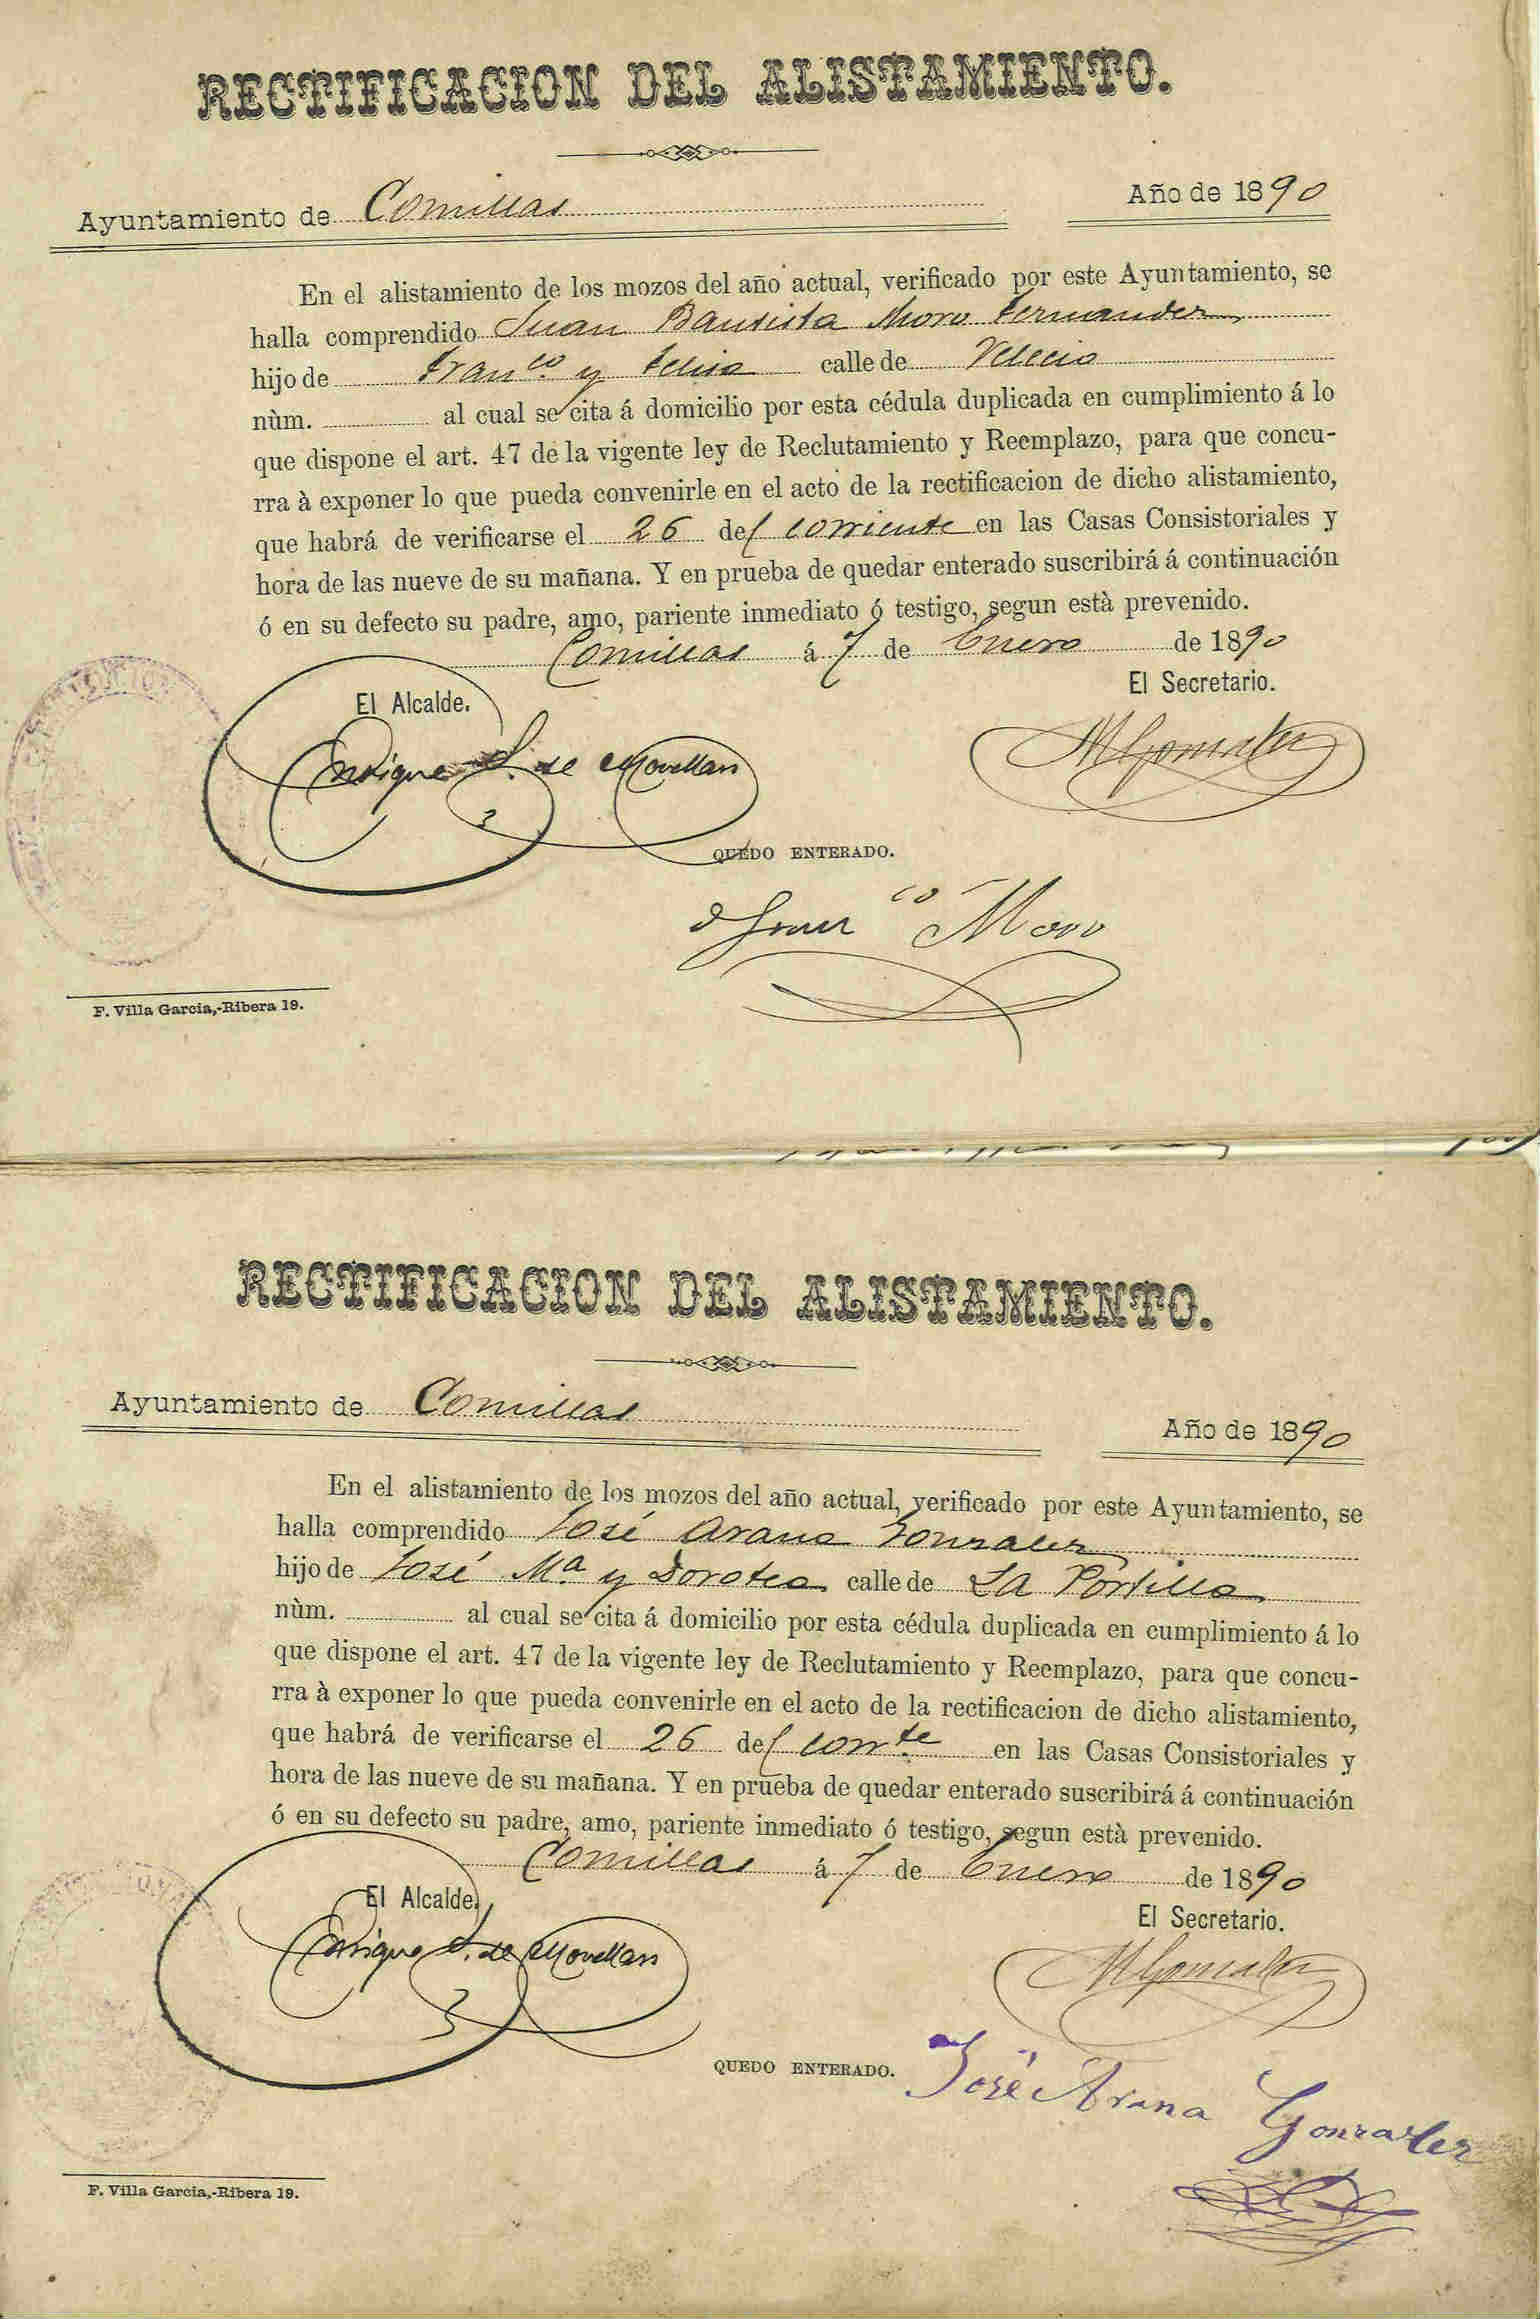 RECTIFICACION DEL ALISTAMIENTO.
Ayuntamiento de Comillas Año de 1890
En el alistamiento de los mozos del año actual, verificado por este Ayuntamiento, se
halla comprendido Juan Bautista Moro Fernandez
hijo de Fran.co y Felisa calle de Velecio
nùm. al cual se cita á domicilio por esta cédula duplicada en cumplimiento á lo
que dispone el art. 47 de la vigente ley de Reclutamiento y Reemplazo, para que concu-
rra à exponer lo que pueda convenirle en el acto de la rectificacion de dicho alistamiento,
que habrá de verificarse el 26 del corriente en las Casas Consistoriales y
hora de las nueve de su mañana. Y en prueba de quedar enterado suscribirá á continuación
ó en su defecto su padre, amo, pariente inmediato ó testigo, segun està prevenido.
Comillas á 7 de Enero de 1890
El Alcalde. El Secretario.
Enrique S. de Movellan M Gonzalez
QUEDO ENTERADO.
Franco Moro
F. Villa Garcia,-Ribera 19.
RECTIFICACION DEL ALISTAMIENTO.
Ayuntamiento de Comillas Año de 1890
En el alistamiento de los mozos del año actual, verificado por este Ayuntamiento, se
halla comprendido José Arana Gonzalez
hijo de José Mª y Dorotea calle de La Portilla
nùm. al cual se cita á domicilio por esta cédula duplicada en cumplimiento á lo
que dispone el art. 47 de la vigente ley de Reclutamiento y Reemplazo, para que concu-
rra à exponer lo que pueda convenirle en el acto de la rectificacion de dicho alistamiento,
que habrá de verificarse el 26 del corrte en las Casas Consistoriales y
hora de las nueve de su mañana. Y en prueba de quedar enterado suscribirá á continuación
ó en su defecto su padre, amo, pariente inmediato ó testigo, segun està prevenido.
Comillas á 7 de Enero de 1890
El Alcalde. El Secretario.
Enrique S. de Movellan M Gonzalez
QUEDO ENTERADO. José Arana Gonzalez
F. Villa Garcia,-Ribera 19.